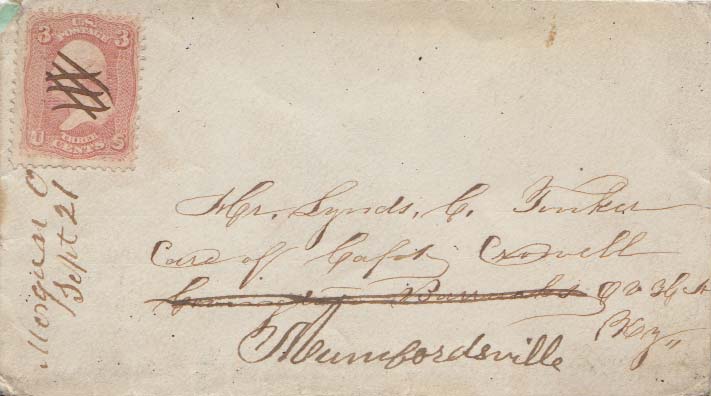 3 U.S. 3
POSTAGE
U THREE S
CENTS
Morgan O
Sept 21
Mr. Lynds. C. Tinker
Care off Capt Crowell
Barracks
Ky
Mumfordsville